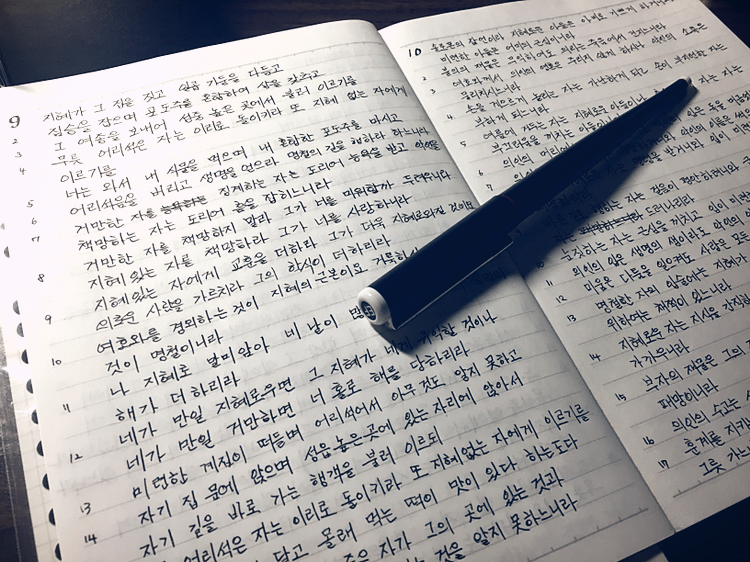 9 지혜가 그 집을 짓고 일곱 기둥을 다듬고
2 짐승을 잡으며 포도주를 혼합하여 상을 갖추고
3 그 여종을 보내어 성중 높은 곳에서 불러 이르기를
4 무릇 어리석은 자는 이리로 돌이키라 또 지혜 없는 자에게
이르기를
5 너는 와서 내 식물을 먹으며 내 혼합한 포도주를 마시고
6 어리석음을 버리고 생명을 얻으라 명철의 길을 행하라 하느니라
7 거만한 자를 징계하는 자는 도리어 능욕을 받고 악인을
책망하는 자는 도리어 흠을 잡히느니라
8 거만한 자를 책망하지 말라 그가 너를 미워할까 두려우니라
지혜 있는 자를 책망하라 그가 너를 사랑하리라
9 지혜 있는 자에게 교훈을 더하라 그가 더욱 지혜로워질 것이요
의로운 사람을 가르치라 그의 학식이 더하리라
10 여호와를 경외하는 것이 지혜의 근본이요
것이 명철이니라
11 나 지혜로 말미암아 네 날이
해가 더하리라
12 네가 만일 지혜로우면 그 지혜가 네게 유익할 것이나
네가 만일 거만하면 너 홀로 해를 당하리라
13 미련한 계집이 떠들며 어리석어서 아무것도 알지 못하고
14 자기 집 문에 앉으며 성읍 높은 곳에 있는 자리에 앉아서
자기 길을 바로 가는 행객을 불러 이르되
어리석은 자는 이리로 돌이키라 또 지혜없는 자에게 이르기를
달고 몰래 먹는 떡이 맛이 있다 하는도다
죽은 자가 그의 곳에 있는 것과
것을 알지 못하느니라
10 솔로몬의 잠언이라 지혜로운 아들은 아비로 기쁘게 하거니와
미련한 아들은 어미의 근심이니라
2 불의의 재물은 무익하여도 의리는 죽음에서 건지느니라
3 여호와께서 의인의 영혼은 주리지 않게 하시나 악인의 소욕은
물리치시느니라
4 손을 게으르게 놀리는 자는 가난하게 되고 손이 부지런한 자는
부하게 되느니라
5 여름에 거두는 자는 지혜로운 아들이나
부끄러움을 끼치는 아들이니라
6 의인의 머리에는
7
걸음이 평안하려니와
드러나리라
눈짓하는 자는 근심을 끼치고 입이
11 의인의 입은 생명의 샘이라도 악인의
12 미움은 다툼을 일으켜도 사랑은 모든
13 명철한 자의 입술에는 지혜가
위하여는 채찍이 있느니라
14 지혜로운 자는 지식을 간직
가까우니라
15 부자의 재물은 그의
패망이니라
16 의인의 수고는
17 훈계를 지키
그릇 가느